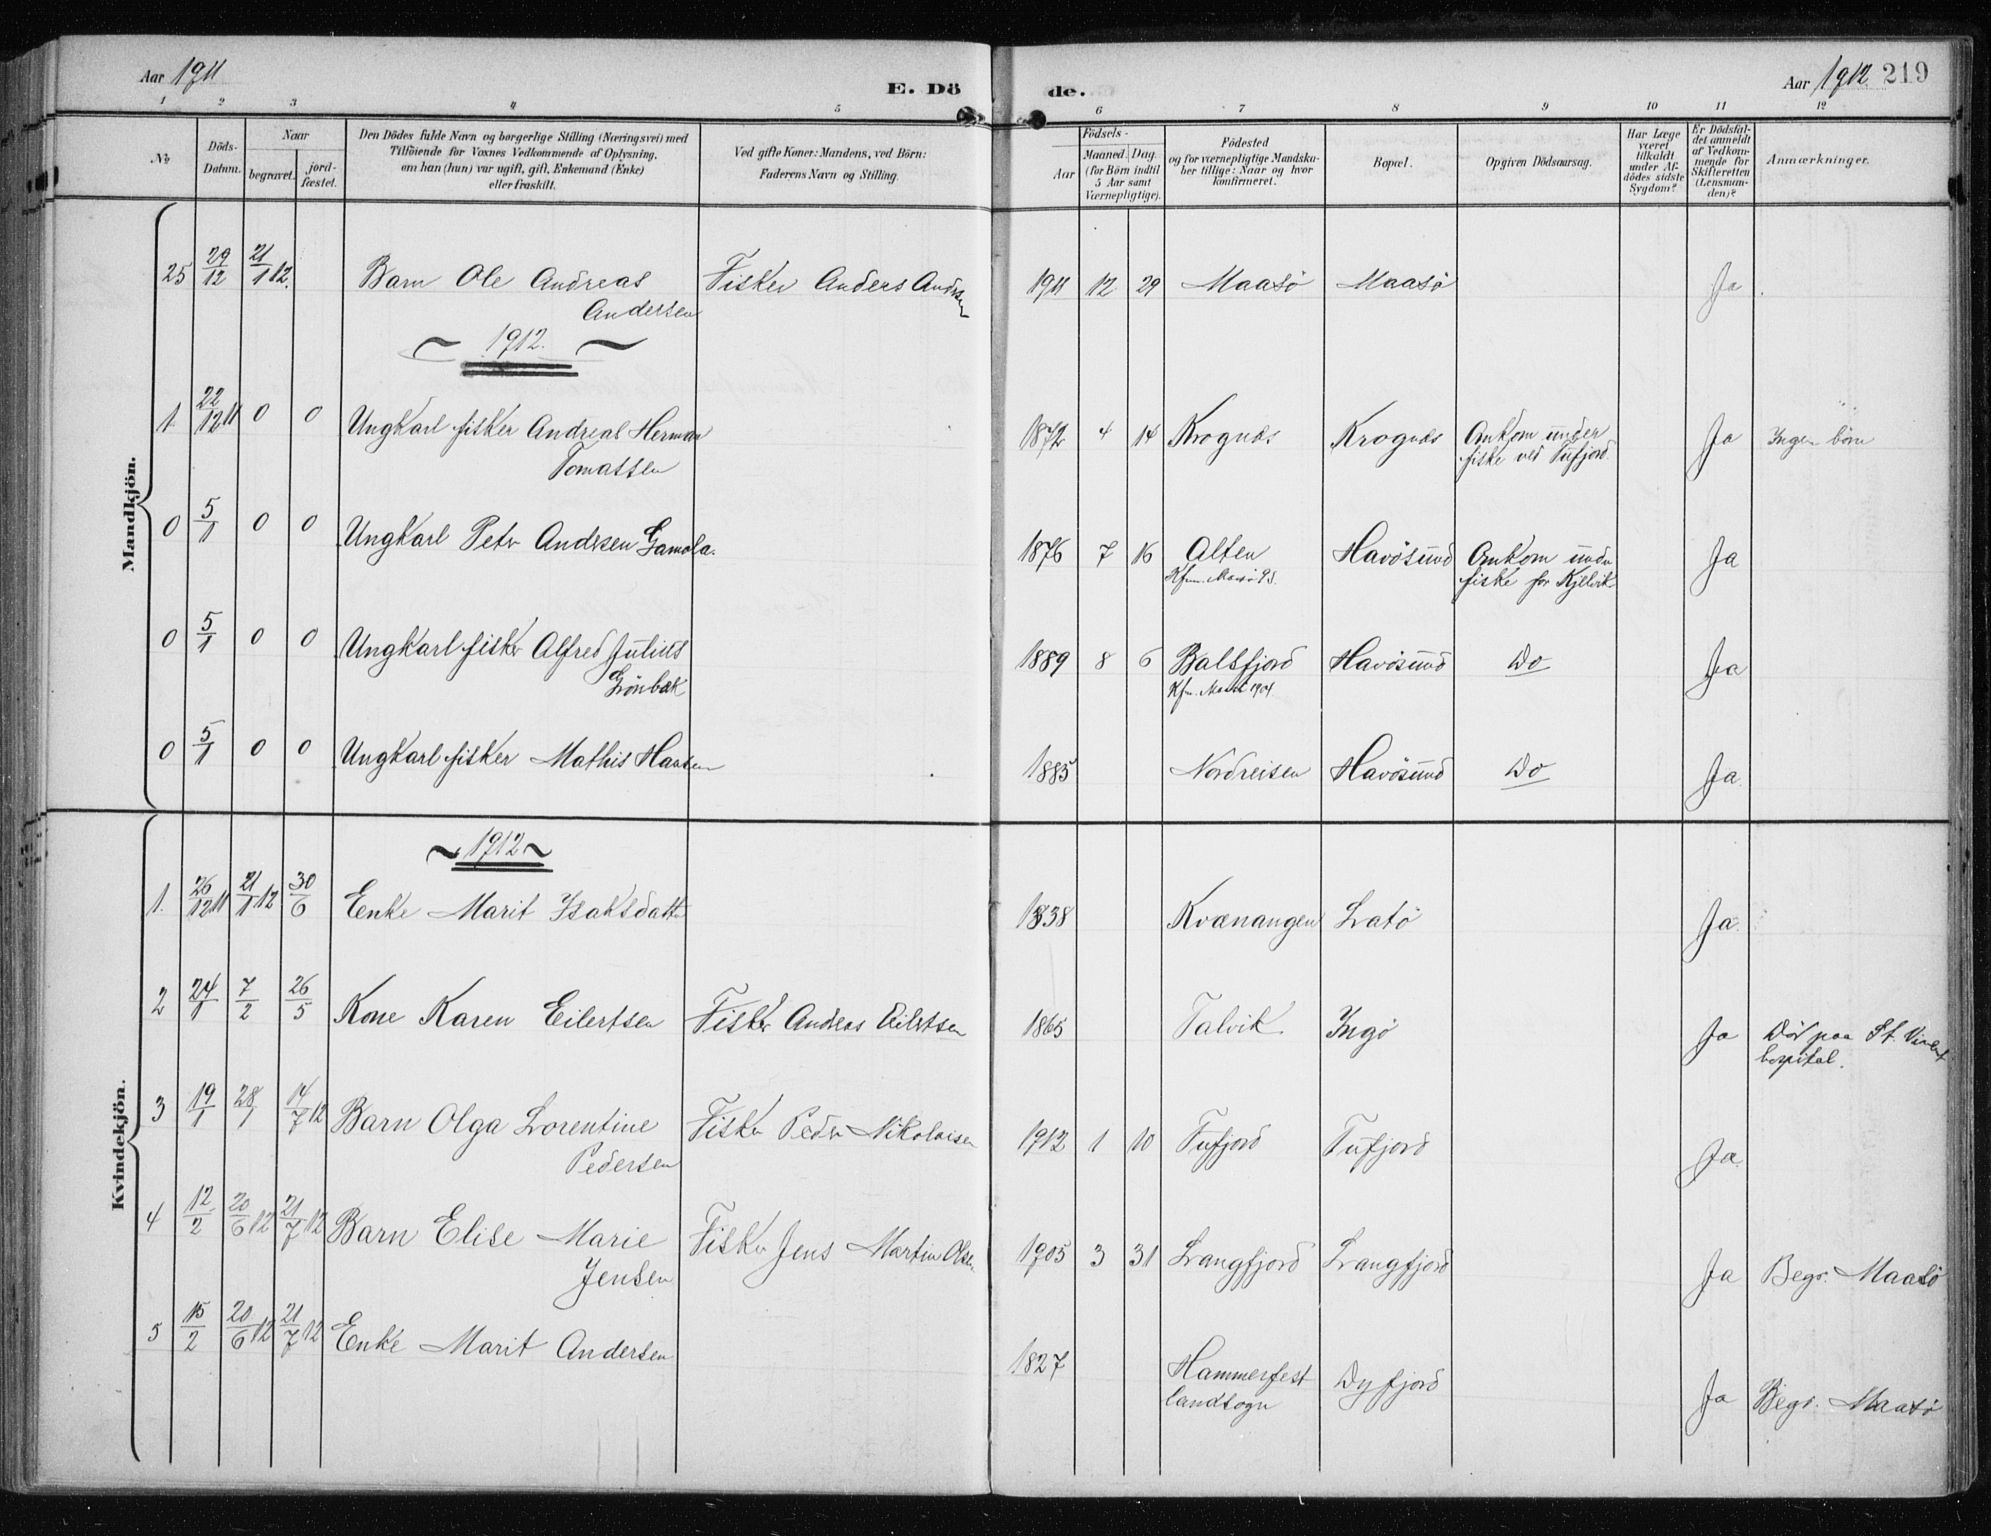 Aar 1911
E. Dö
de.
Aar 1912 219
1 2 3 4 5 6 7 8 9 10 11 12
No
Döds-
Datum.
Naar
begravet.
jord-
fæstet.
Den Dödes fulde Navn og borgerlige Stilling (Næringsvei) med
Tilföiende for Voxnes Vedkommende af Oplysning,
om han (hun) var ugift, gift, Enkemand (Enke)
eller fraskilt.
Ved gifte Koner: Mandens, ved Börn:
Faderens Navn og Stilling.
Födsels-
Aar
Maaned. Dag
(for Börn indtil
5 Aar samt
Værnepligtige).
Födested
og for værnepligtige Mandska-
ber tillige: Naar og hvor
konfirmeret.
Bopæl.
Opgiven Dödsaarsag.
Har Læge
været
tilkaldt
under Af-
dödes sidste
Sygdom?
Er Dödsfal-
det anmeldt
af Vedkom-
mende for
Skifteretten
(Lensman-
den)?
Anmærkninger.
Mandkjön.
25 29/12 21/1 12. Barn Ole Andreas Fisker Anders 1911 12 29 Maasö Maasö Ja
Andersen
1912.
1. 22/12 11 0 0 Ungkarl fisker Andreas Herman 1872 4 14 Krognæs Krognæs Omkom under Ja Ingen börn
Tomassen fiske ved Tufjord.
0 5/1 0 0 Ungkarl Peter Andersen Gamola. 1876 7 16 Alten Havösund Omkom under Ja
Kfm. Maasö 93. fiske for Kjelvik
0 5/1 0 0 Ungkarl fisker Alfred Julius 1889 8 6 Balsfjord Havösund Do Ja
Grönbæk Kfm. Maasö 1904.
0 5/1 0 0 Ungkarl fisker Mathis Hansen 1885 Nordreisen Havösund Do Ja.
Kvindekjön.
1912
1. 26/12 11 21/1 12 30/6 Enke Marit Isaksdatter 1838 Kvænangen Latö Ja.
2 24/1 7/2 26/5 Kone Karen Eilertsen Fisker Andreas Eilertsen 1865 Talvik Ingö Ja Död paa St. Vincent
hospital.
3 19/1 28/1 14/7 12 Barn Olga Lorentine Fisker Peder Nikolaisen 1912 1 10 Tufjord Tufjord Ja.
Pedersen
4 12/2 20/6 12 21/7 12 Barn Elise Marie Fisker Jens Martin Olsen 1905 3 31 Langfjord Langfjord Ja Begr. Maasö
Jensen
5 15/2 20/6 12 21/7 12 Enke Marit Andersen 1827 Hammerfest Dyfjord Ja Begr. Maasö
landsogn